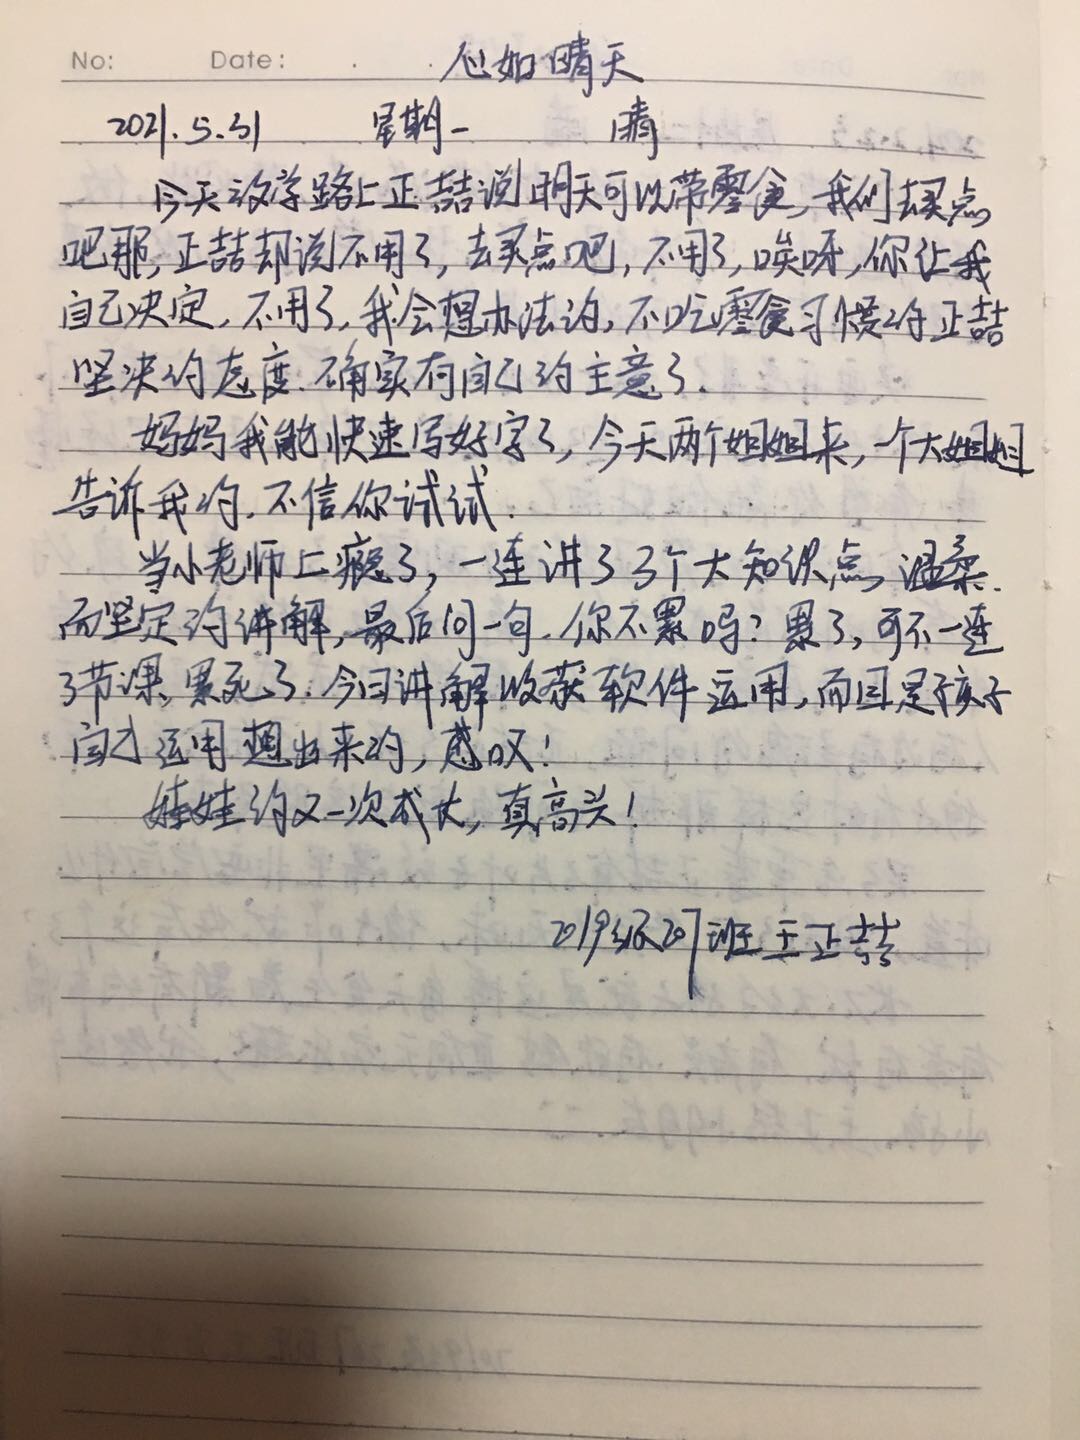 No: Date: 心如晴天
2021.5.31 星期一 晴
今天放学路上正喆说明天可以带零食,我们去买点
吧那,正喆却说不用了,去买点吧,不用了,唉呀,你让我
自己决定,不用了,我会想办法的,不吃零食习惯的正喆
坚决的态度.确实有自己的主意了.
妈妈我能快速写好字了,今天两个姐姐来,一个大姐姐
告诉我的.不信你试试.
当小老师上瘾了,一连讲了3个大知识点,温柔
而坚定的讲解,最后问一句.你不累吗?累了,可不一连
3节课,累死了.今日讲解收获软件运用,而因是孩子
自己运用想出来的,感叹!
娃娃的又一次成长,真高兴!
2019级207班王正喆